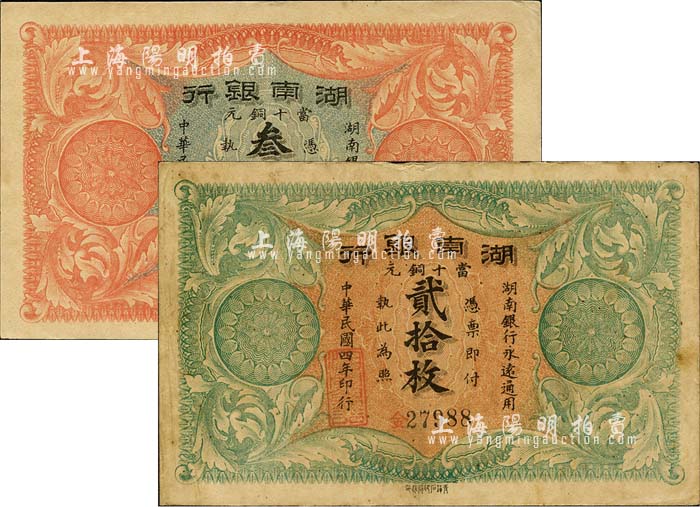 上海陽明拍賣
www.yangmingauction.com
行銀南湖
元銅十當
湖南銀
憑
叁
執
中華民
上海陽明拍賣
www.yangmingauction.com
行銀南湖
元銅十當
湖南銀行永遠通用
憑票即付
貳拾枚
執此為照
中華民國四年印行
金27988
上海陽明拍賣
www.yangmingauction.com